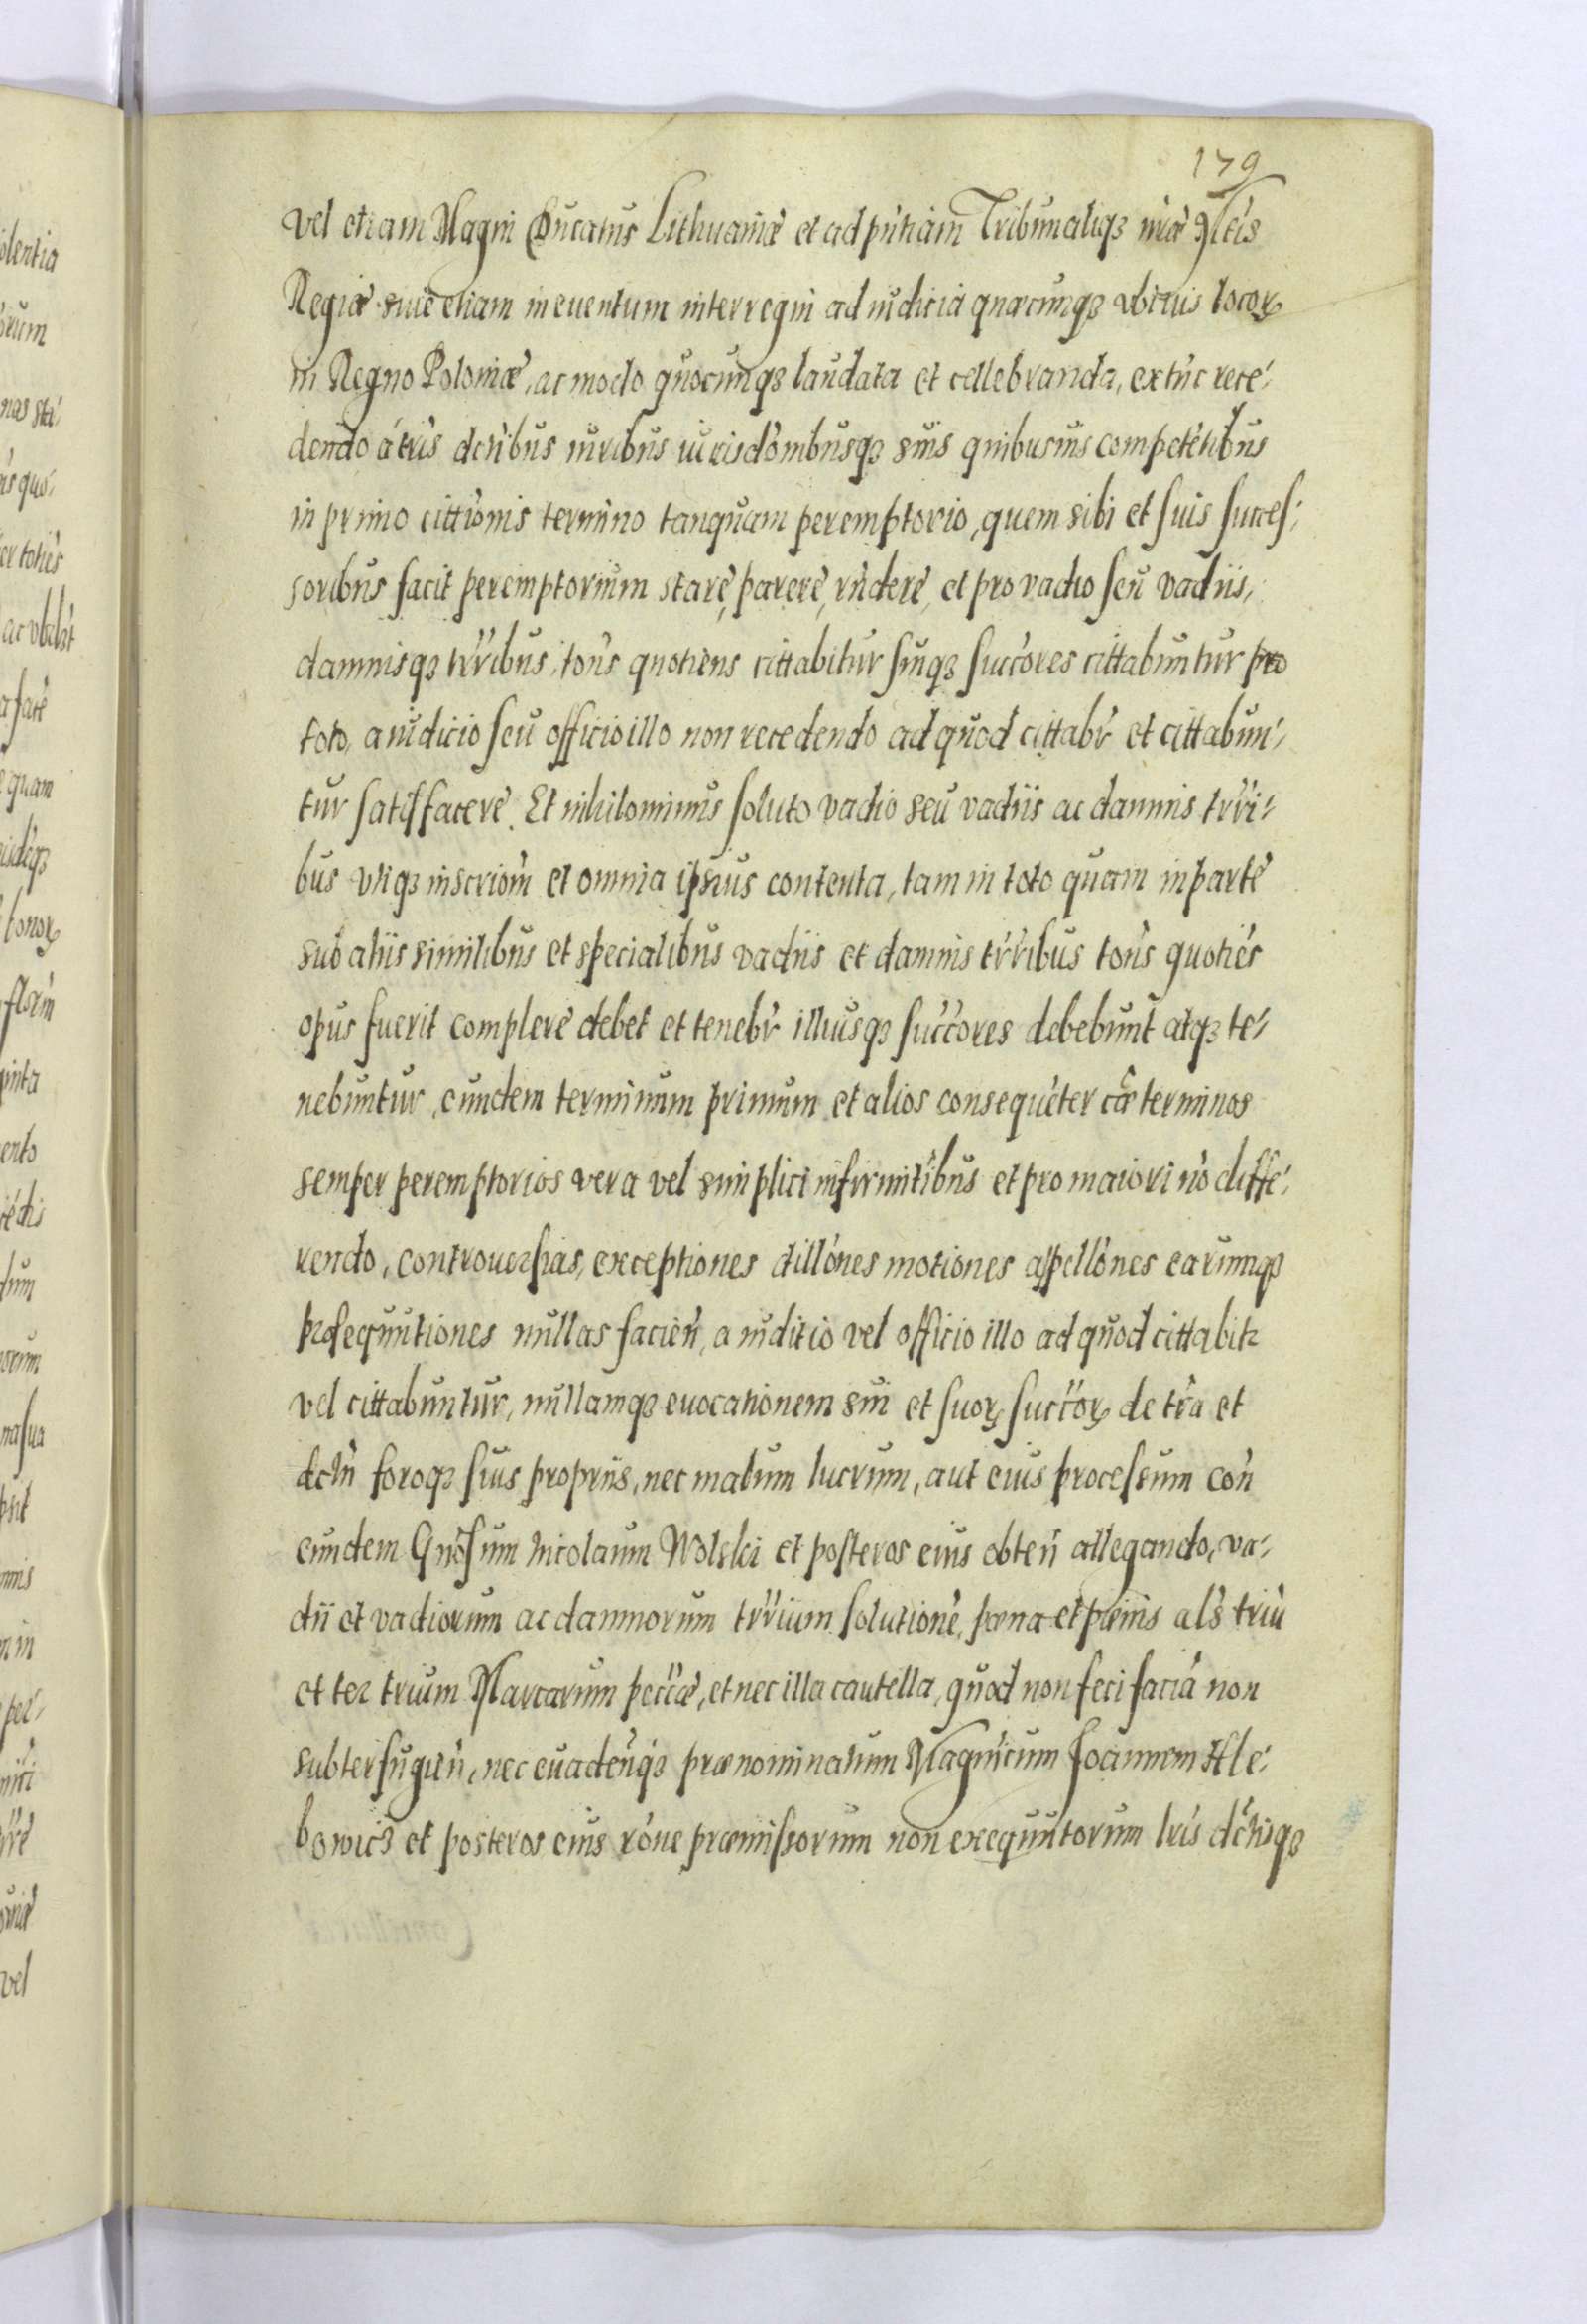 179
vel etiam Magni Ducatus Lithuaniæ et ad pñtiam Tribunaliqз nræ Mtis
Regiæ siue etiam in euentum interregni ad iudicia quæcunqз vbiuis locoꝝ
in Regno Poloniæ, ac modo quocunqз laudata et cellebranda, extunc rece-
dendo a tris dctribus iuribus iurisdõnibusqз suis quibusuis competẽtibus
in primo cittionis termino tanquam peremptorio, quem sibi et suis succes-
soribus facit peremptorium stare, parere, rñdere, et pro vadio seu vadiis,
damnisqз trribus, toñs quotiens cittabitur suiqз succores cittabuntur pro
toto, a iudicio seu officio illo non recedendo ad quod cittabr et cittabun-
tur satisfacere. Et nihilominus soluto vadio seu vadiis ac damnis trri-
bus vtiqз inscriom et omnia ipsius contenta, tam in toto quam in parte
sub aliis similibus et specialibus vadiis et damnis trribus toñs quotiẽs
opus fuerit complere debet et tenebr illiusqз succores debebunt atqз te-
nebuntur, eundem terminum primum et alios consequẽter cæ terminos
semper peremptorios vera vel simplici infirmitibus et pro maiori nõ diffe-
rendo, controuersias, exceptiones dillõnes motiones appellõnes earumqз
prosequutiones nullas facieñ, a iuditio vel officio illo ad quod cittabitr
vel cittabuntur, nullamqз euocationem sui et suoꝝ succoꝝ de tra et
dctñ foroqз suis propriis, nec malum lucrum, aut eius processum coñ
eundem Gnosum Nicolaum Wolski et posteros eius obteñ allegando, va-
dii et vadiorum ac damnorum trrium solutione, pœna et pœnis als triũ
et ter trium Marcarum peccæ, et nec illa cautella, quod non feci faciã non
subterfugieñ, nec euadeñqз prænominatum Magnicum Joannem Hle-
bowicz et posteros eius rõne præmissorum non exequutorum lris dctisqз